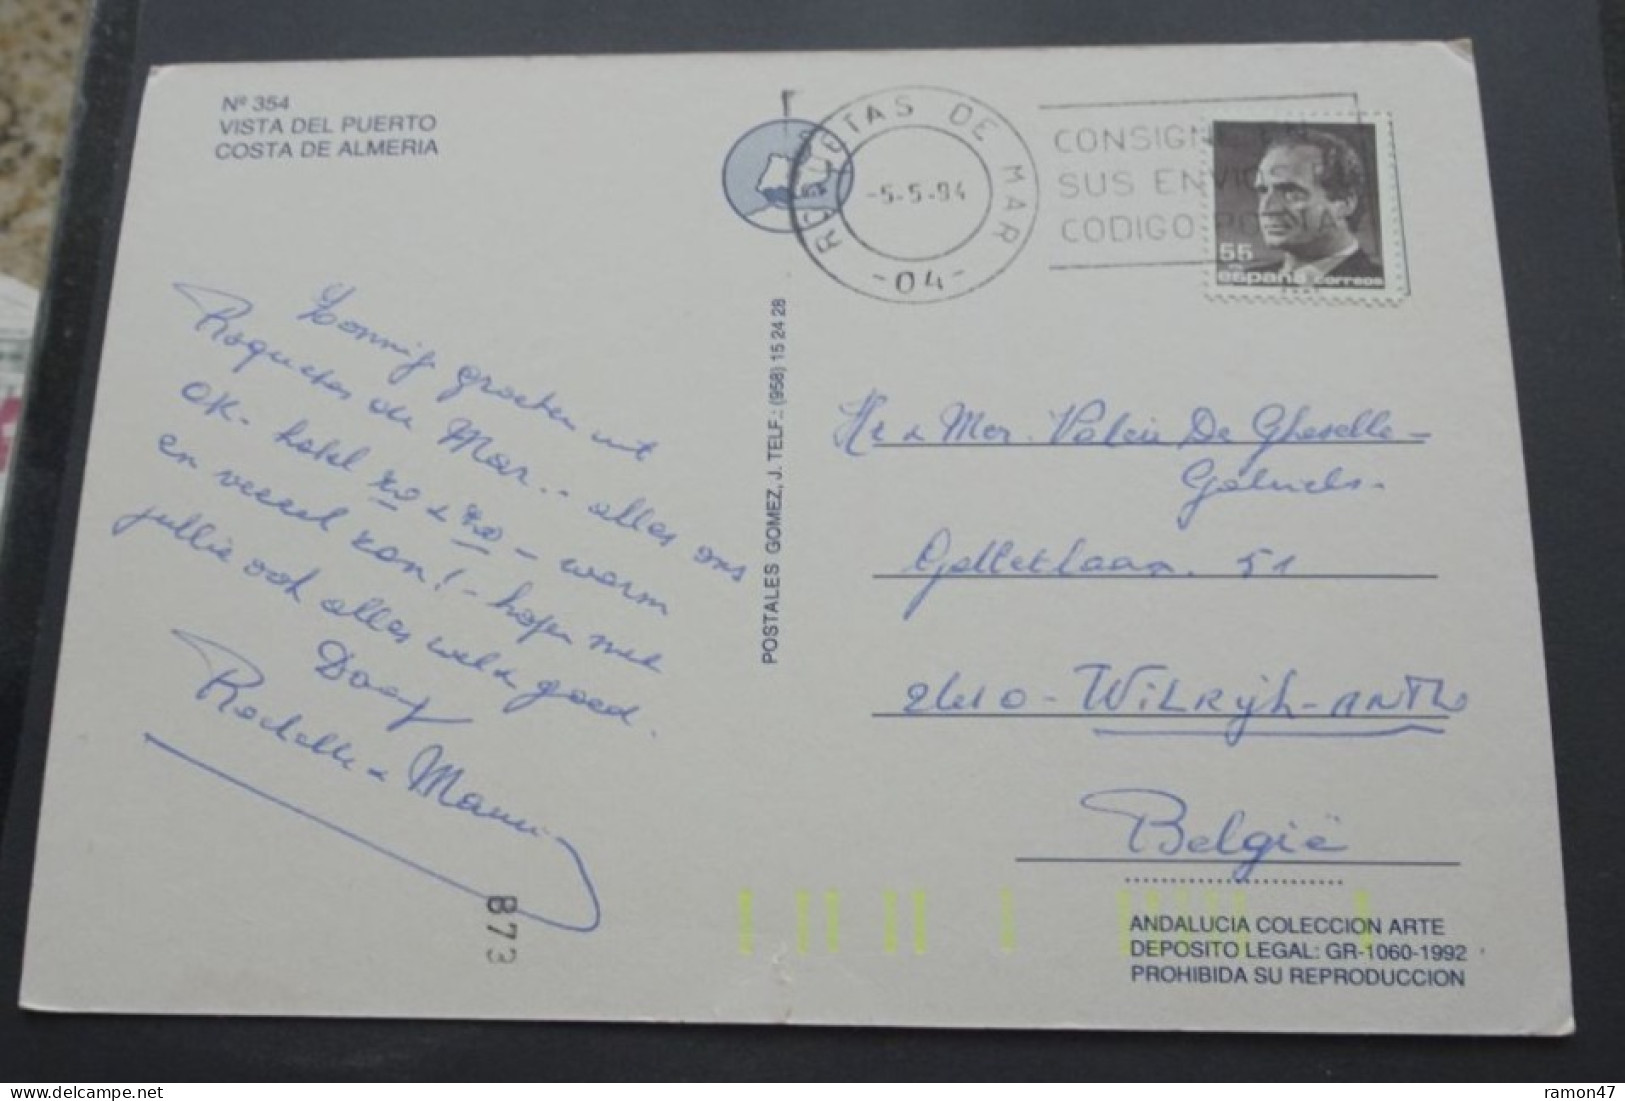 Nº 354
VISTA DEL PUERTO
COSTA DE ALMERIA
ROQUETAS DE MAR
-5-5-94
-04-
CONSIGNE EN
SUS ENVIOS EL
CODIGO POSTAL
55
PTA
España correos
Zonnige groeten uit
Roquetas de Mar.. alles ons
OK - hotel zo & zo - warm
en veel kan! - hopen met
jullie ook alles wel & goed.
Daag
Rochelle &
POSTALES GOMEZ, J. TELF.: (958) 15 24 28
Hr & Mer. De Gheselle -
Gabriels.
51
2610 - Wilrijk - ANTW
België
873
ANDALUCIA COLECCION ARTE
DEPOSITO LEGAL: GR-1060-1992
PROHIBIDA SU REPRODUCCION
ramon47